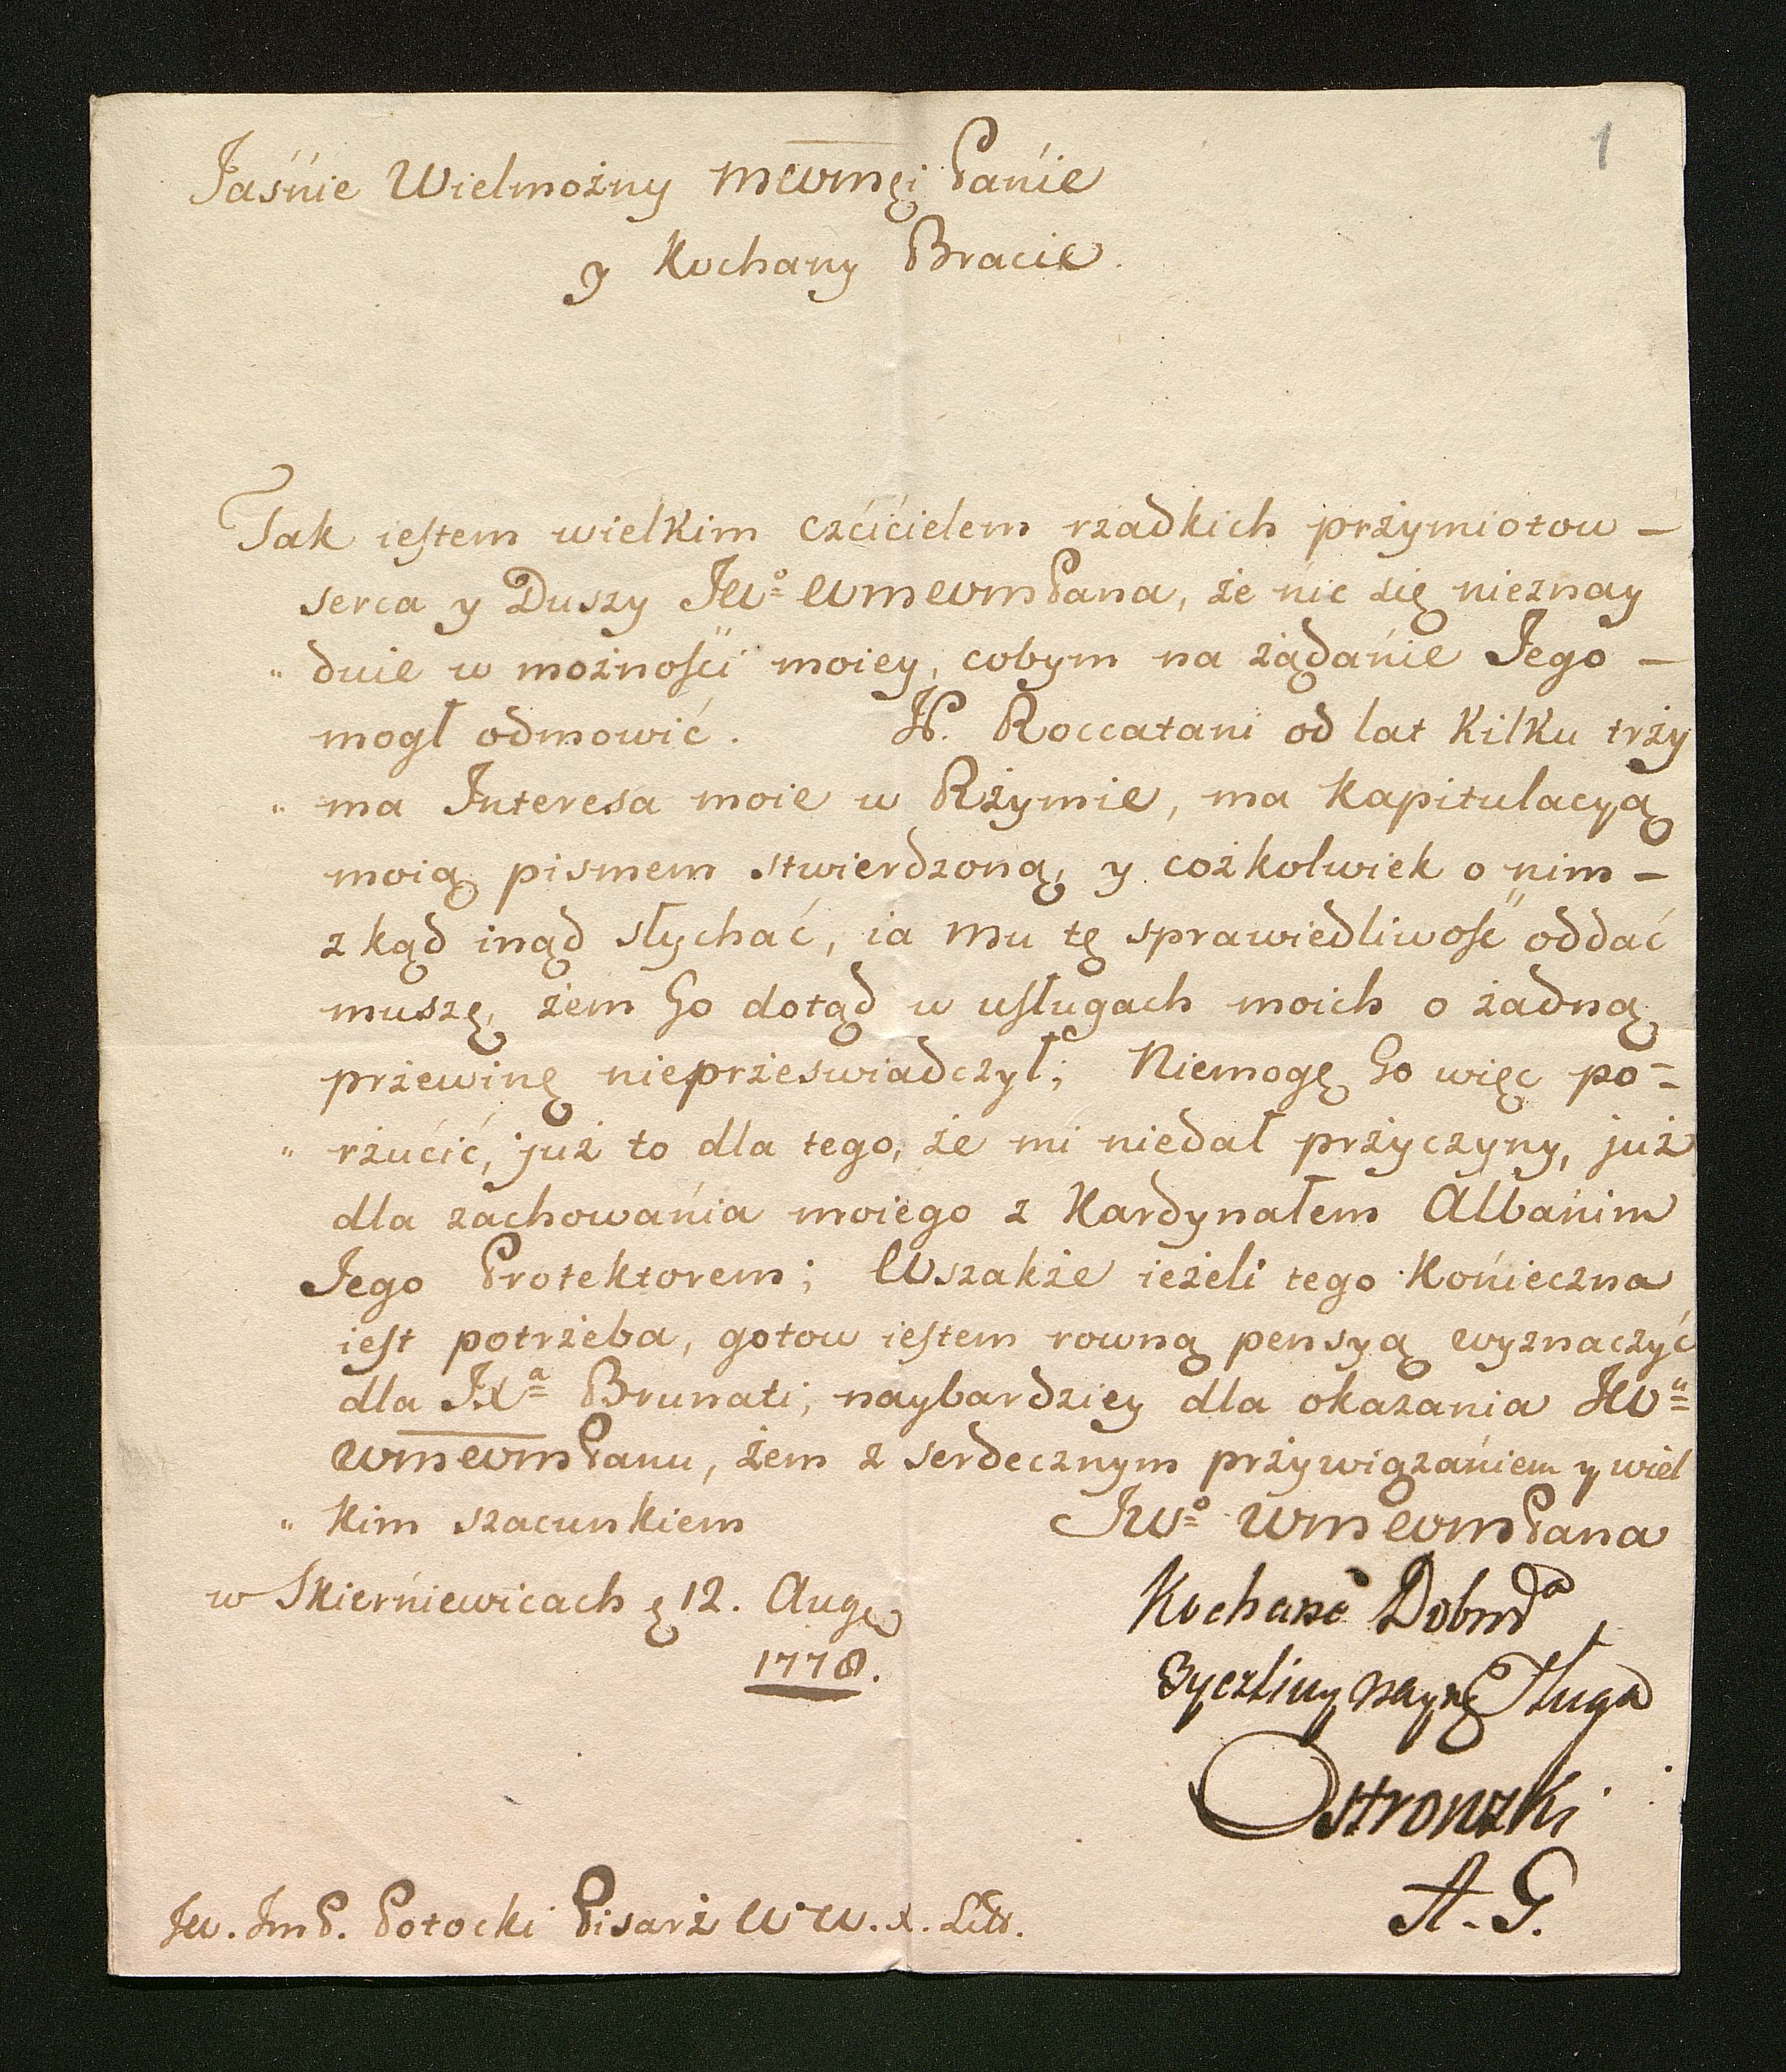 1
Jaśnie Wielmożny mwmęi Panie
y Kochany Bracie.
Tak iestem wielkim czćicielem rzadkich prżymiotow –
serca y Duszy JW̲º WmewmPana, że nic się nieznay
„ duie w możnośći moiey, cobym na żądanie Jego –
mogł odmowić. JP. Roccatani od lat kilku trży
„ ma Interesa moie w Rżymie, ma Kapitulacyą
moią pismem stwierdzoną, y cożkolwiek o nim –
z kąd inąd słychać, ia mu tę sprawiedliwość oddać
muszę, żem Go dotąd w usługach moich o żadną
prżewinę nieprżeswiadczył; Niemogę Go więc po=
„ rżućić, już to dla tego, że mi niedał prżyczyny, już
dla zachowánia moiego z Kardynałem Albánim
Jego Protektorem; Wszakże ieżeli tego Konieczna
iest potrżeba, gotow iestem rowną pensyą wyznaczyć
dla JXª Brunati, naybardziey dla okazania JWᵘ
WmewmPanu, żem z serdecznym prżywiązániem y wiel
„ kim szacunkiem JWº WmewmPana
w Skierniewicach 12. Aug
1778.
Kochanº Dobrª
życzliwy nayn Sługa
Ostrowzki
A. G.
JW. JmP. Potocki Pisarż W W. X. Litt.